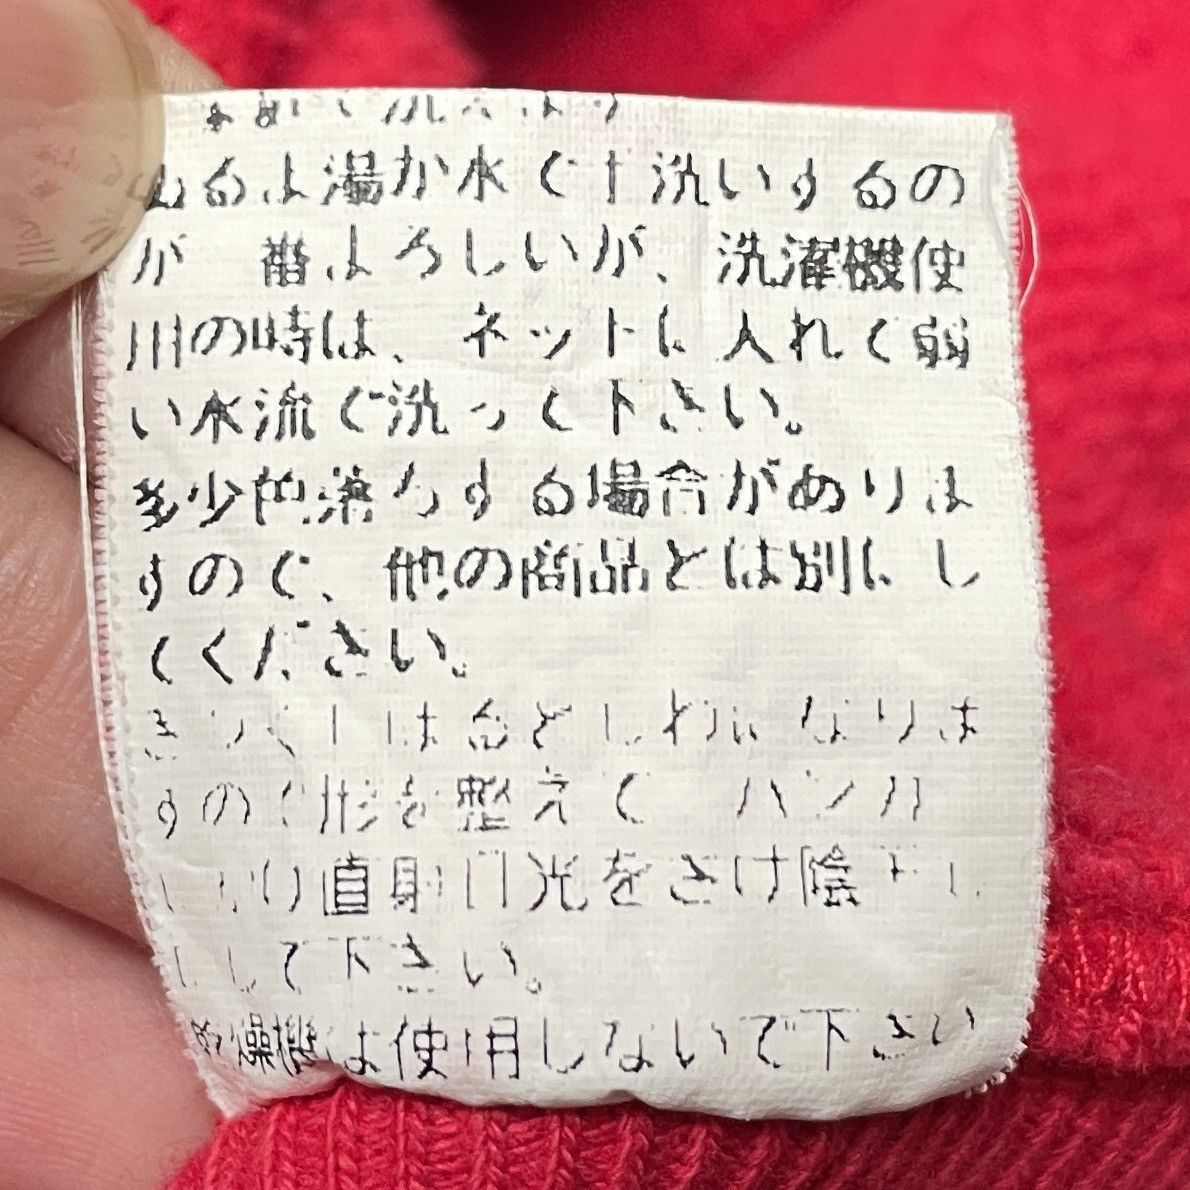 ぬるま湯か水で手洗いするの
が一番よろしいが、洗濯機使
用の時は、ネットに入れて弱
い水流で洗って下さい。
多少色落ちする場合がありま
すので、他の商品とは別にし
てください。
しわになりま
すので形を整えて ハンガー
直射日光をさけ陰干し
にして下さい。
乾燥機は使用しないで下さい